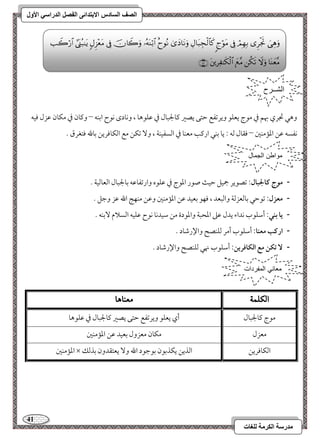 الصف السادس الابتدائى الفصل الدراسي الأول
وَهِىَ تَجْرِى بِهِمْ فِى مَوْجٍ كَٱلْجِبَالِ وَنَادَىٰ نُوحٌ ٱبْنَهُۥ وَكَانَ فِى مَعْزِلٍ يَٰبُنَىَّ ٱرْكَب
مَّعَنَا وَلَا تَكُن مَّعَ ٱلْكَٰفِرِينَ ﴿٤٢﴾
الشـــرح
وهي تجري بهم في موج يعلو ويرتفع حتى يصير كالجبال في علوها ، ونادى نوح ابنه – وكان في مكان عزل فيه
نفسه عن المؤمنين – فقال له : يا بني اركب معنا في السفينة ، ولا تكن مع الكافرين بالله فتغرق .
مواطن الجمال
- موج كالجبال: تصوير جميل حيث صور الموج في علوه وارتفاعه بالجبال العالية .
- معزل: توحي بالعزلة والبعد ، فهو بعيد عن المؤمنين وعن منهج الله عز وجل .
- يا بني: أسلوب نداء يدل على المحبة والمودة من سيدنا نوح عليه السلام لابنه .
- اركب معنا: أسلوب أمر للنصح والإرشاد .
- لا تكن مع الكافرين: أسلوب نهي للنصح والإرشاد .
معاني المفردات
الكلمة معناها
موج كالجبال أي يعلو ويرتفع حتى يصير كالجبال في علوها
معزل مكان معزول بعيد عن المؤمنين
الكافرين الذين يكذبون بوجود الله ولا يعتقدون بذلك × المؤمنين
41
مدرسة الكرمة للغات